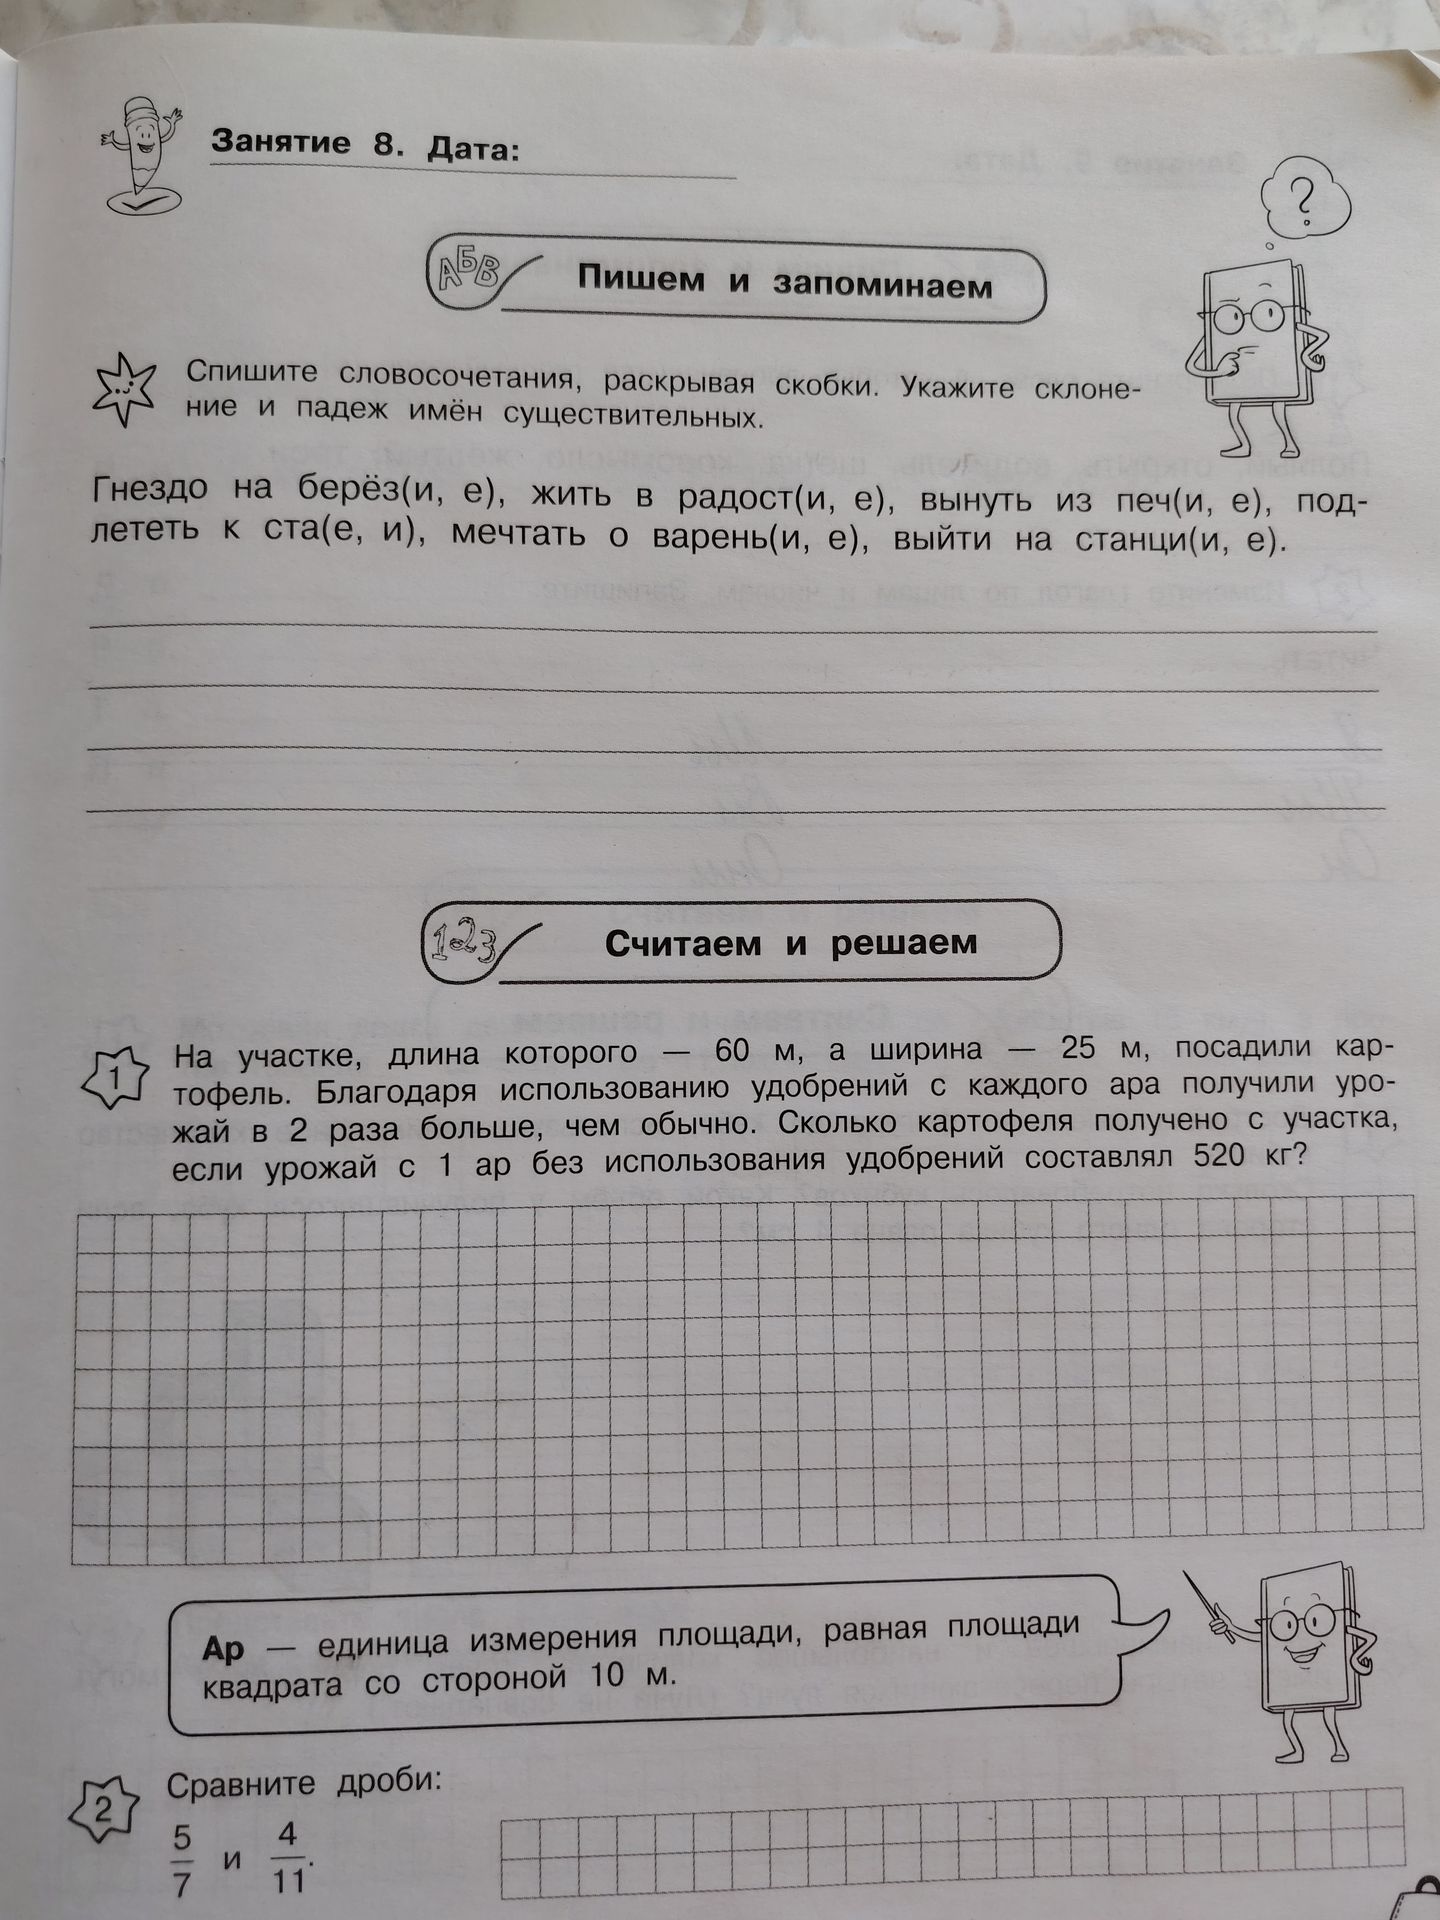 Занятие 8. Дата:
?
АБВ
Пишем и запоминаем
Спишите словосочетания, раскрывая скобки. Укажите склоне-
ние и падеж имён существительных.
Гнездо на берёз(и, е), жить в радост(и, е), вынуть из печ(и, е), под-
лететь к ста(е, и), мечтать о варень(и, е), выйти на станци(и, е).
123
Считаем и решаем
1
На участке, длина которого — 60 м, а ширина — 25 м, посадили кар-
тофель. Благодаря использованию удобрений с каждого ара получили уро-
жай в 2 раза больше, чем обычно. Сколько картофеля получено с участка,
если урожай с 1 ар без использования удобрений составлял 520 кг?
Ар — единица измерения площади, равная площади
квадрата со стороной 10 м.
2
Сравните дроби:
5/7 и 4/11.